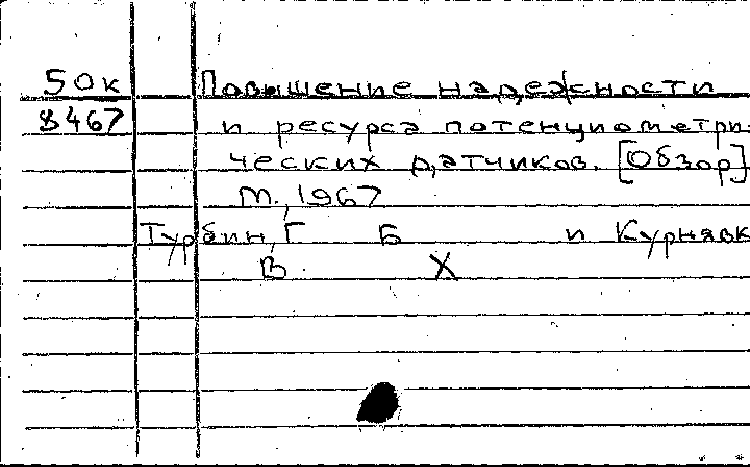 50к Повышение надежности
8467 и ресурса потенциометри-
ческих датчиков. [Обзор]
М., 1967
Турбин, Г Б и Курнявк
В. Х